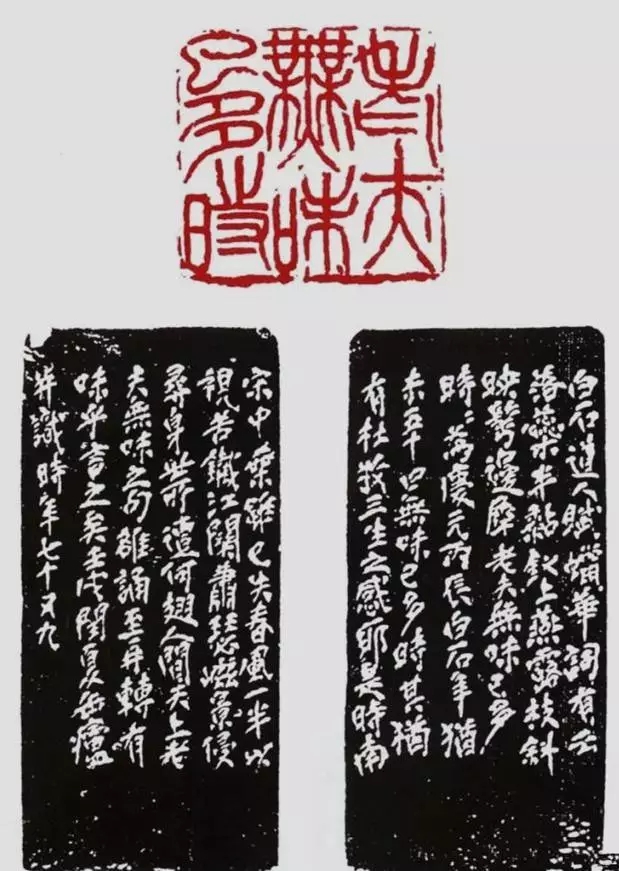 老夫
無味
已多時
白石道人賦蠟華詞有云
落蘂半黏釵上燕露枝斜
映鬢邊犀老夫無味已多
時〻為慶元丙辰白石年猶
未五十曰無味已多時其猶
有杜牧三生之感耶是時南
宋中乘雖已失春風一半以
視苦鐵江關蕭瑟景侵
尋身世所遭何翅人間天上老
夫無味之句雖誦至再轉有
味乎言之矣壬戌閏夏缶廬
并識時年七十又九